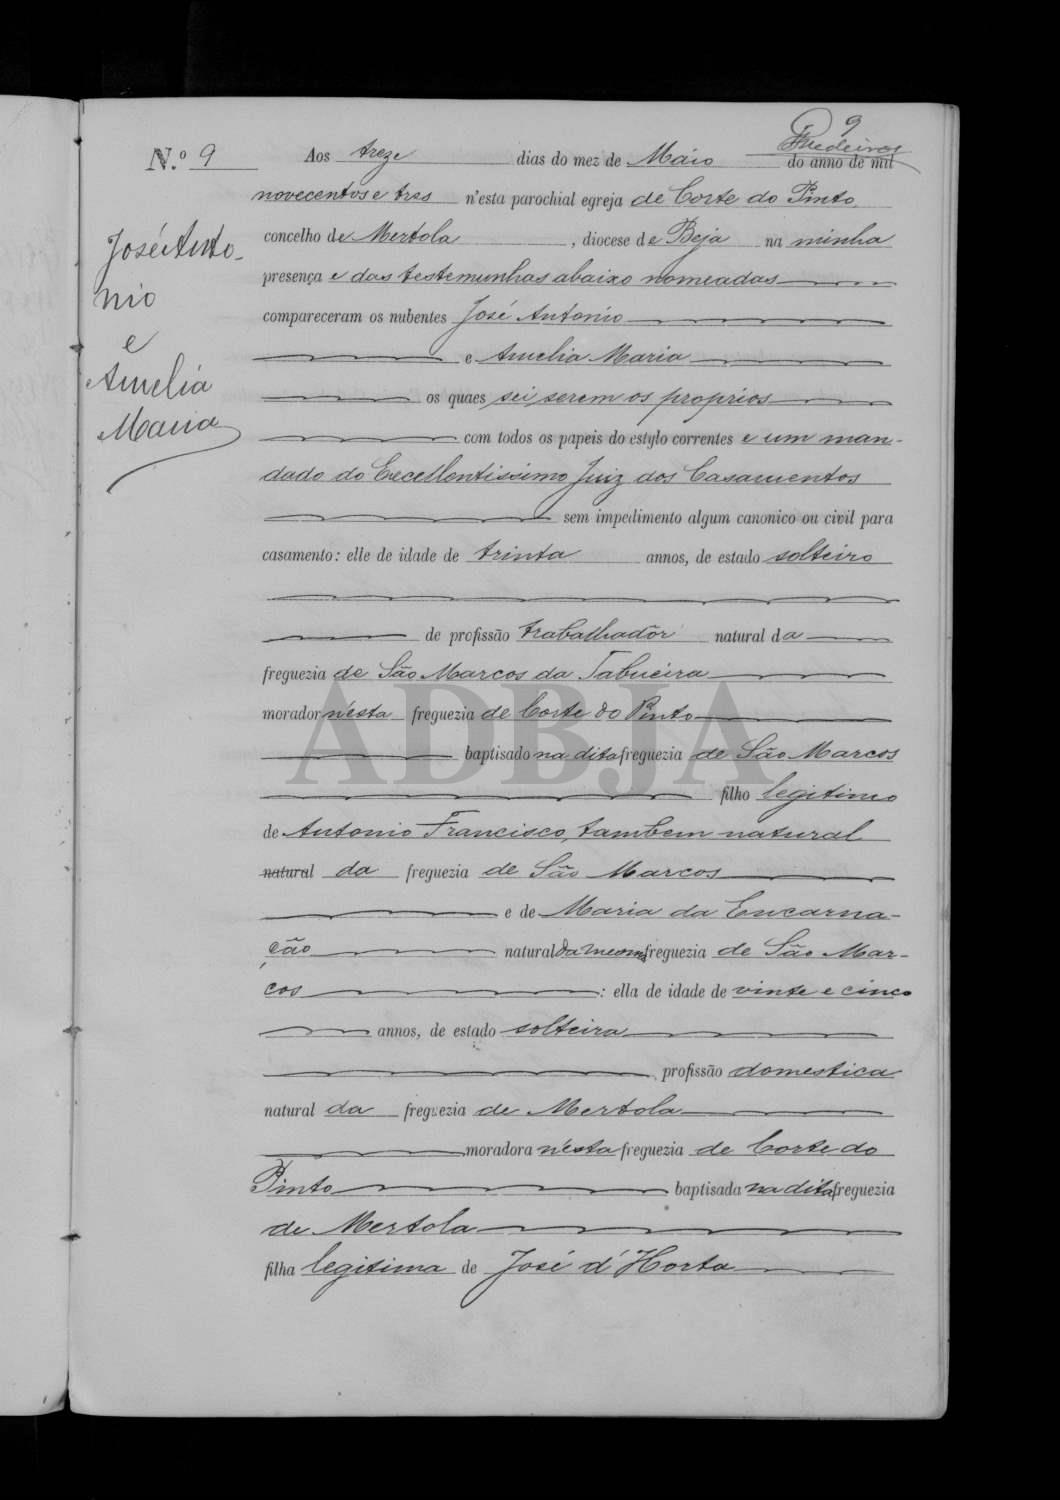 9
Medeiros
N.º 9
Aos treze dias do mez de Maio do anno de mil
novecentos e tres n'esta parochial egreja de Corte do Pinto,
concelho de Mertola, diocese de Beja na minha
presença e das testemunhas abaixo nomeadas
compareceram os nubentes José Antonio
e Amelia Maria
os quaes sei serem os proprios
com todos os papeis do estylo correntes e um man-
dado do Excellentissimo Juiz dos Casamentos
sem impedimento algum canonico ou civil para
casamento: elle de idade de trinta annos, de estado solteiro
de profissão trabalhador natural da
freguezia de São Marcos da Tabueira
morador n'esta freguezia de Corte do Pinto
baptisado na dita freguezia de São Marcos
filho legitimo
de Antonio Francisco, tambem natural
natural da freguezia de São Marcos
e de Maria da Encarna-
ção natural da mesma freguezia de São Mar-
cos : ella de idade de vinte e cinco
annos, de estado solteira
, profissão domestica
natural da freguezia de Mertola
moradora n'esta freguezia de Corte do
Pinto baptisada na dita freguezia
de Mertola
filha legitima de José d'Horta
José Anto-
nio
e
Amelia
Maria
ADBJA